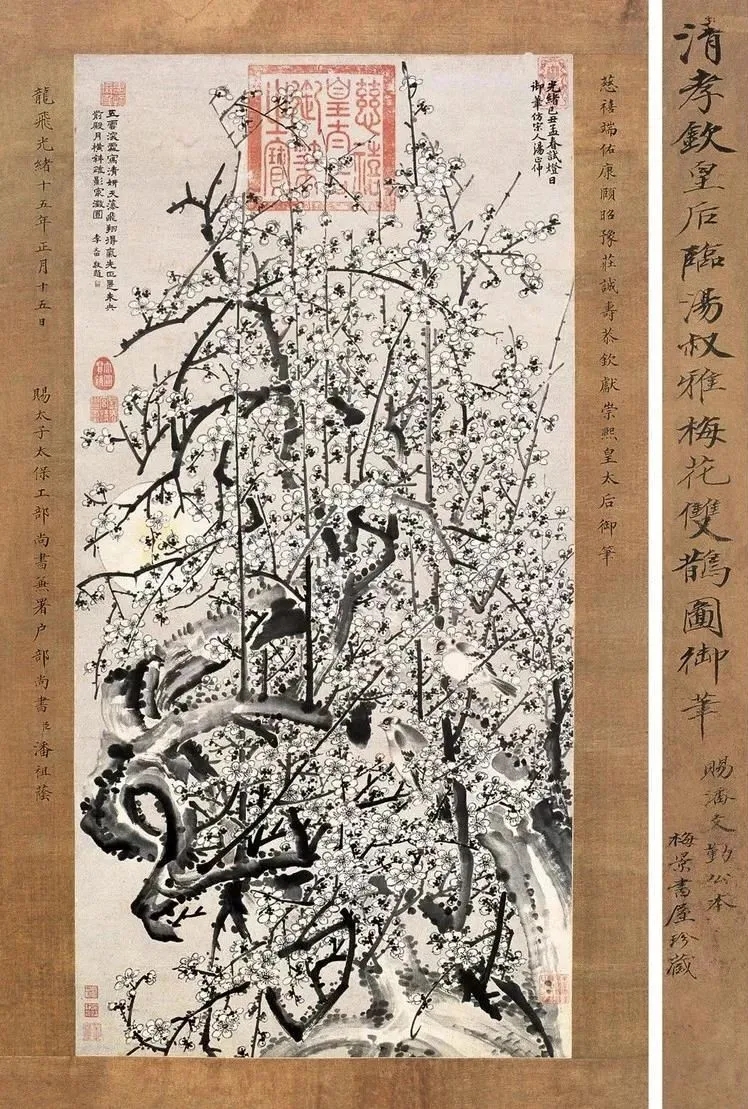 清孝欽皇后臨湯叔雅梅花雙鵲圖御筆
賜潘文勤公本
梅景書屋珍藏
慈禧端佑康頤昭豫莊誠壽恭欽獻崇熙皇太后御筆
光緒己丑孟春試燈日
御筆仿宋人湯正仲
慈禧
皇太后
御筆
之寶
五雲深處寫清妍天藻飛翔得氣先
前殿月橫斜疏影 敬題
龍飛光緒十五年正月十五日
賜太子太保工部尚書兼署户部尚書臣潘祖蔭